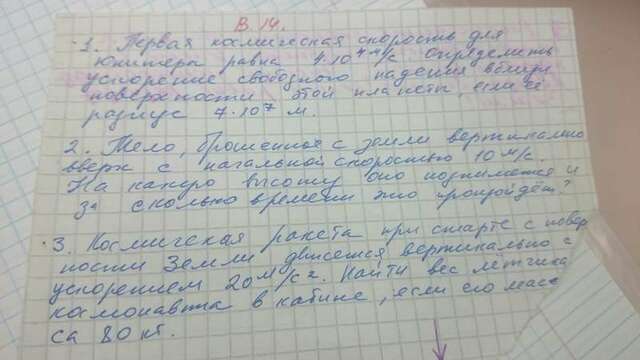 В. 14.
1. Первая космическая скорость для
Юпитера равна 4·10⁴ м/с. Определить
ускорение свободного падения вблизи
поверхности этой планеты, если её
радиус 7·10⁷ м.
2. Тело, брошенное с земли вертикально
вверх с начальной скоростью 10 м/с.
На какую высоту оно поднимется и
за сколько времени это произойдёт?
3. Космическая ракета при старте с повер
ности Земли движется вертикально с
ускорением 20 м/с². Найти вес лётчика
космонавта в кабине, если его мас
са 80 кг.